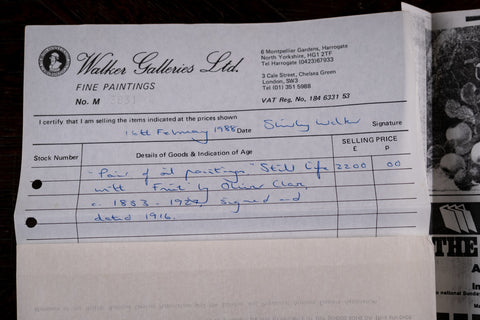 Walker Galleries Ltd.
FINE PAINTINGS
No. M
6 Montpellier Gardens, Harrogate
North Yorkshire, HG1 2TF
Tel Harrogate (0423)67933
3 Cale Street, Chelsea Green
London, SW3
Tel (01) 351 5988
VAT Reg. No, 184 6331 53
I certify that I am selling the items indicated at the prices shown
16th February 1988 Date Shirley Walker Signature
Stock Number Details of Goods & Indication of Age SELLING PRICE
£ p
"Pair of oil paintings" Still Life 2200 00
with Fruit by Oliver Clare,
c. 1853 - 1928, signed and
dated 1916.
THE